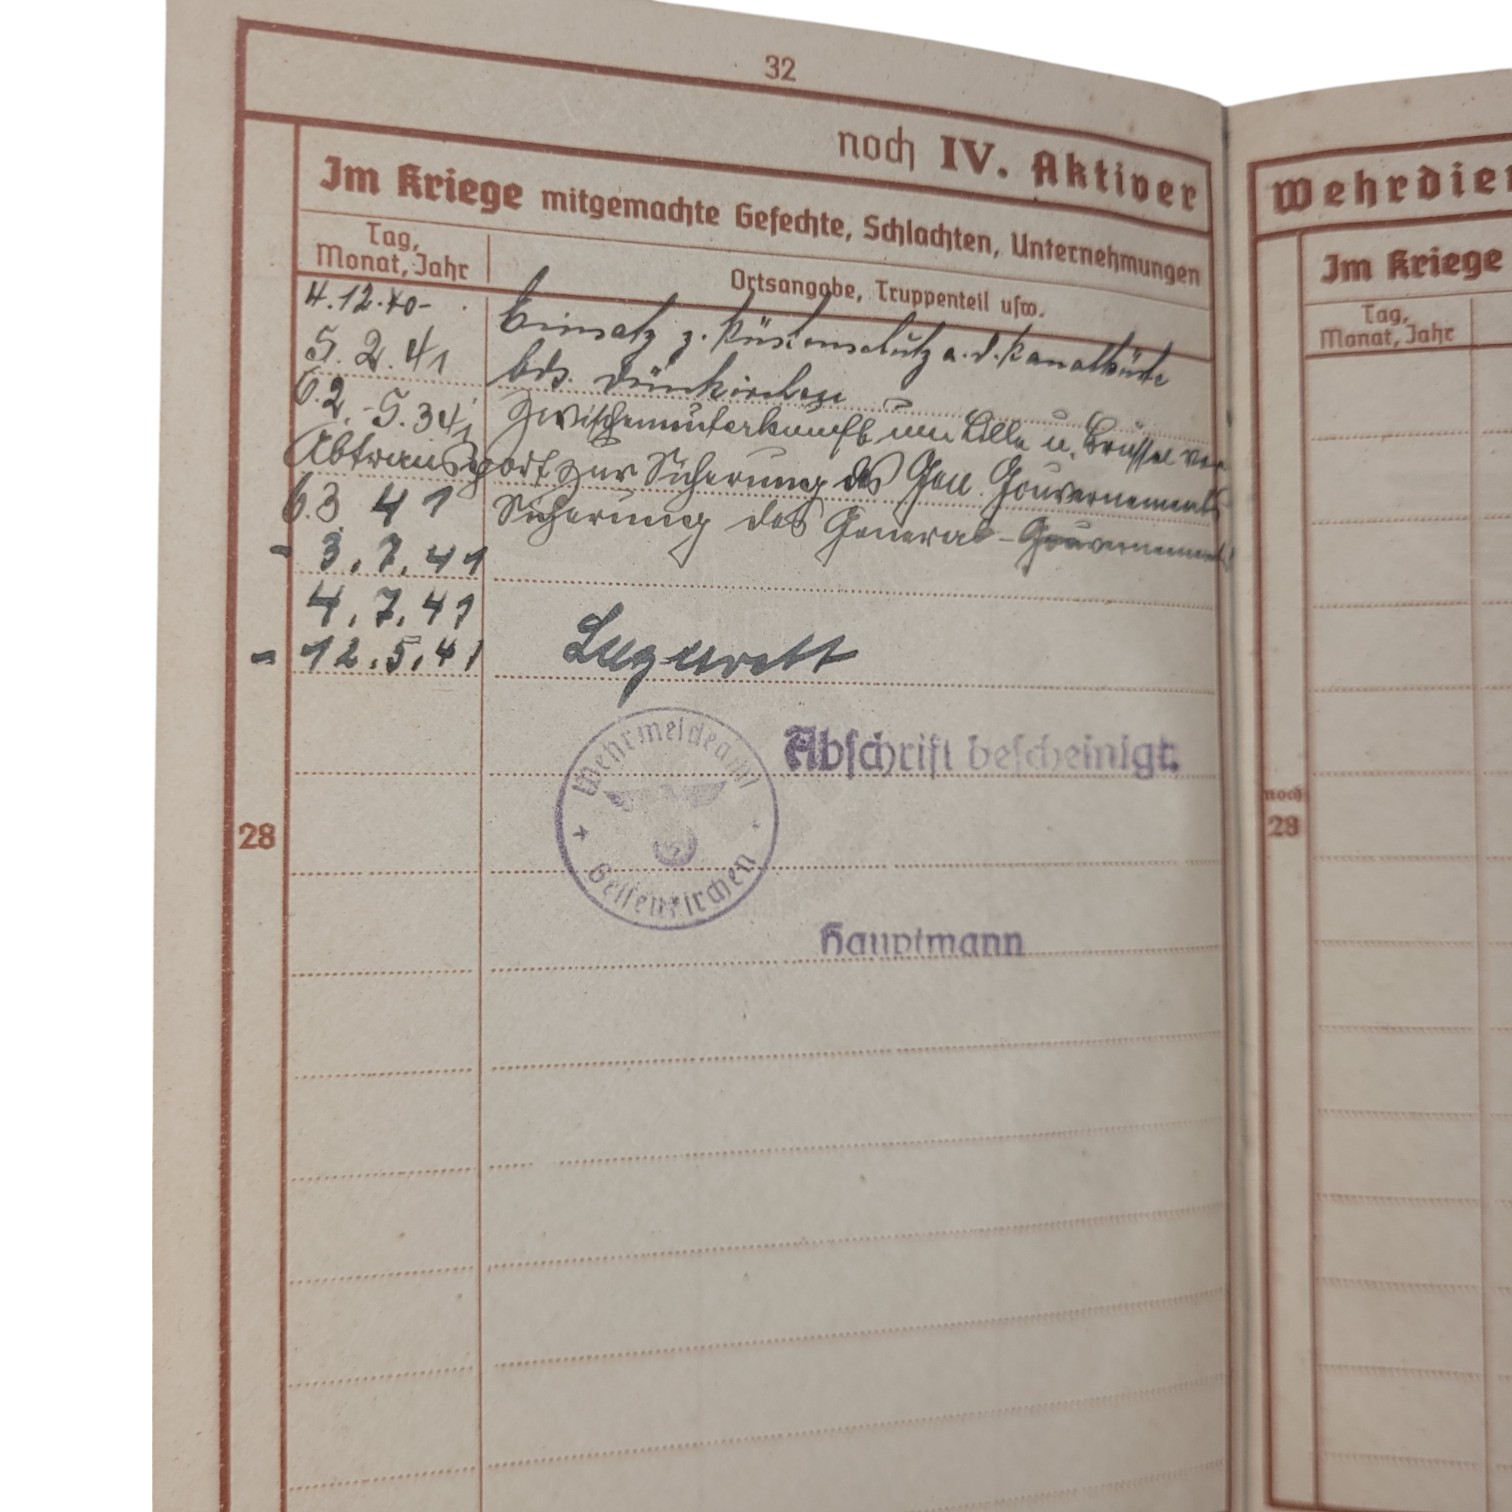 32
noch IV. Aktiver
Im Kriege mitgemachte Gefechte, Schlachten, Unternehmungen
Tag,
Monat, Jahr
Ortsangabe, Truppenteil usw.
4.12.40-
Einsatz z. Küstenschutz a. d. Kanalküste
5.2.41
bds. Dünkirchen
6.2.-5.341
Zwischenunterkunft um Lille u. Brüssel vor
Abtransport zur Sicherung des Gen Gouvernements
6.3 41
Sicherung des General-Gouvernements
- 3.7.41
4.7.41
- 12.5.41
Lazarett
Wehrmeldeamt
Geisenkirchen
Abschrift bescheinigt.
28
Hauptmann
Wehrdien
Im Kriege
Tag,
Monat, Jahr
noch
28